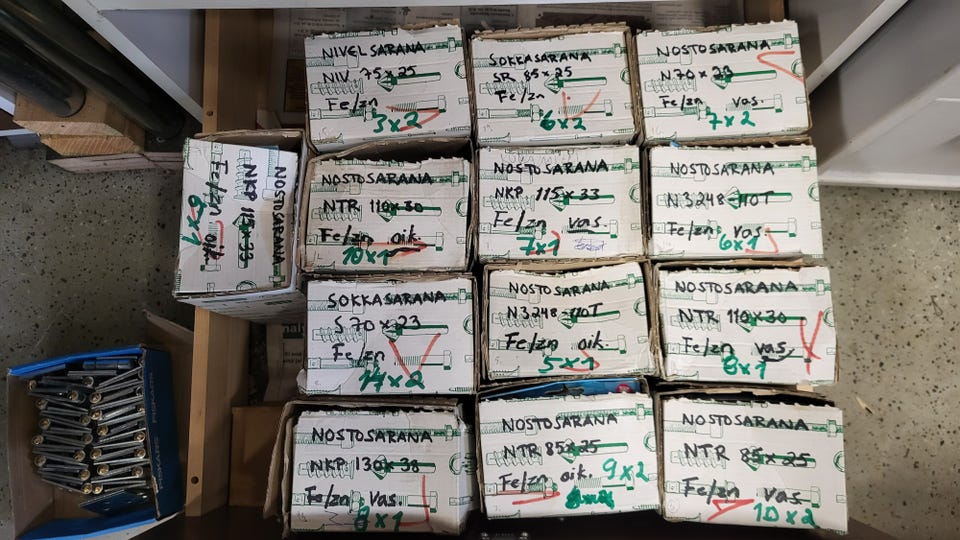 NIVELSARANA
NIV 75x25
Fe/zn
3x2
SOKKASARANA
SR 85x25
Fe/zn
6x2
NOSTOSARANA
Fe/zn vas.
7x2
NOSTOSARANA
Fe/zn
NOSTOSARANA
NTR 110x30
Fe/zn oik.
10x1
NOSTOSARANA
NKP 115x33
Fe/zn vas.
7x1
NOSTOSARANA
N3248-110T
Fe/zn vas.
6x1
SOKKASARANA
S 70x23
Fe/zn
14x2
NOSTOSARANA
N3248-110T
Fe/zn oik.
5x1
NOSTOSARANA
NTR 110x30
Fe/zn vas.
8x1
NOSTOSARANA
NKP 130x38
Fe/zn vas.
8x1
NOSTOSARANA
NTR 85x25
Fe/zn oik.
9x2
NOSTOSARANA
NTR 85x25
Fe/zn vas
10x2